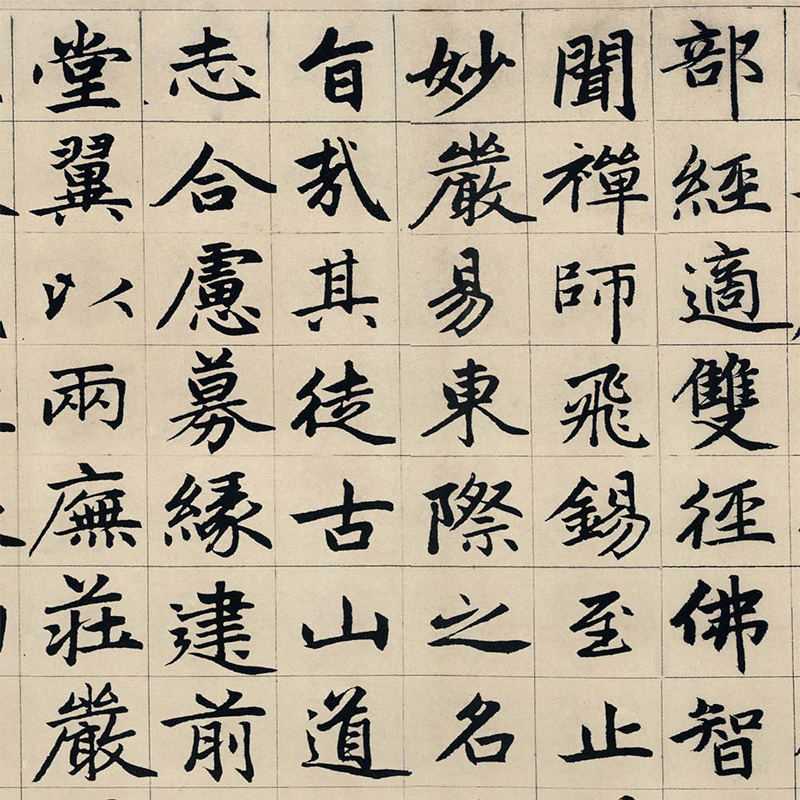 部經適雙徑佛智
聞禪師飛錫至止
妙嚴易東際之名
有哉其徒古山道
志合慮募緣建前
堂翼以兩廡莊嚴